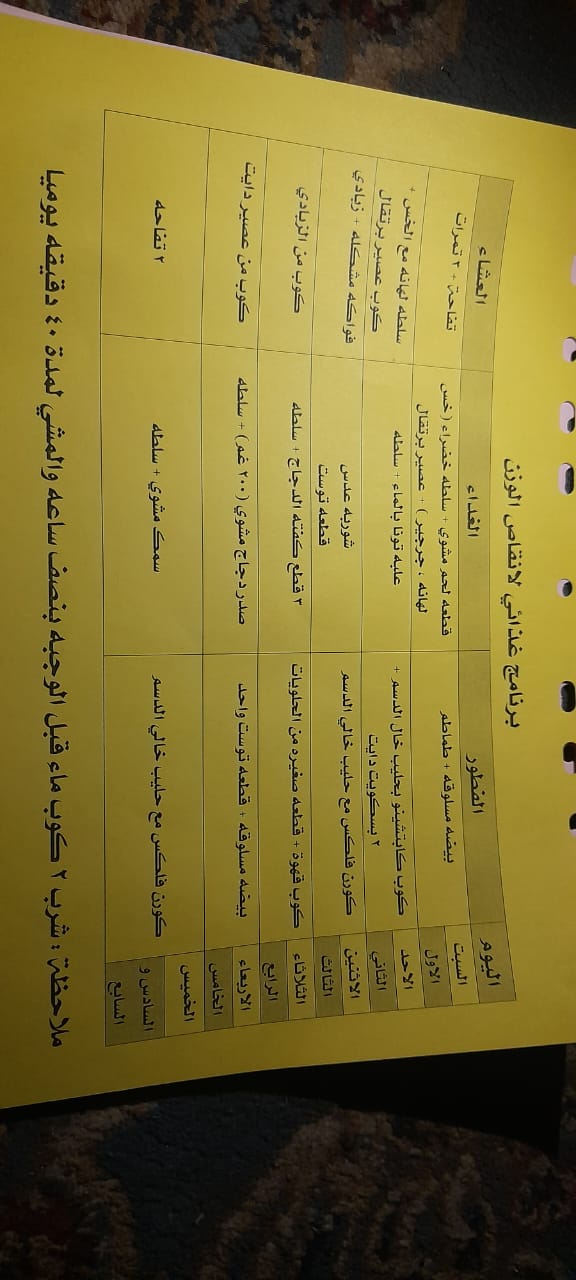 برنامج غذائي لانقاص الوزن
اليوم
الفطور
الغداء
العشاء
السبت
الاول
بيضه مسلوقه + طماطم
قطعه لحم مشوي + سلطه خضراء (خس
لهانه ، جرجير) + عصير برتقال
تفاحة + ٣ تمرات
الاحد
الثاني
كوب كابتشينو بحليب خال الدسم +
٢ بسكويت دايت
علبه تونا بالماء + سلطه
سلطه لهانه مع الخس +
كوب عصير برتقال
الاثنين
الثالث
كورن فلكس مع حليب خالي الدسم
شوربه عدس
قطعه توست
فواكه مشكله + زبادي
الثلاثاء
الرابع
كوب قهوة + قطعه صغيره من الحلويات
٣ قطع كفته الدجاج + سلطه
كوب من الزبادي
الاربعاء
الخامس
بيضه مسلوقه + قطعه توست واحد
صدر دجاج مشوي (٢٠٠ غم) + سلطه
كوب من عصير دايت
الخميس
السادس و
السابع
كورن فلكس مع حليب خالي الدسم
سمك مشوي + سلطه
٢ تفاحه
ملاحظة : شرب ٢ كوب ماء قبل الوجبه بنصف ساعه والمشي لمدة ٤٠ دقيقه يوميا